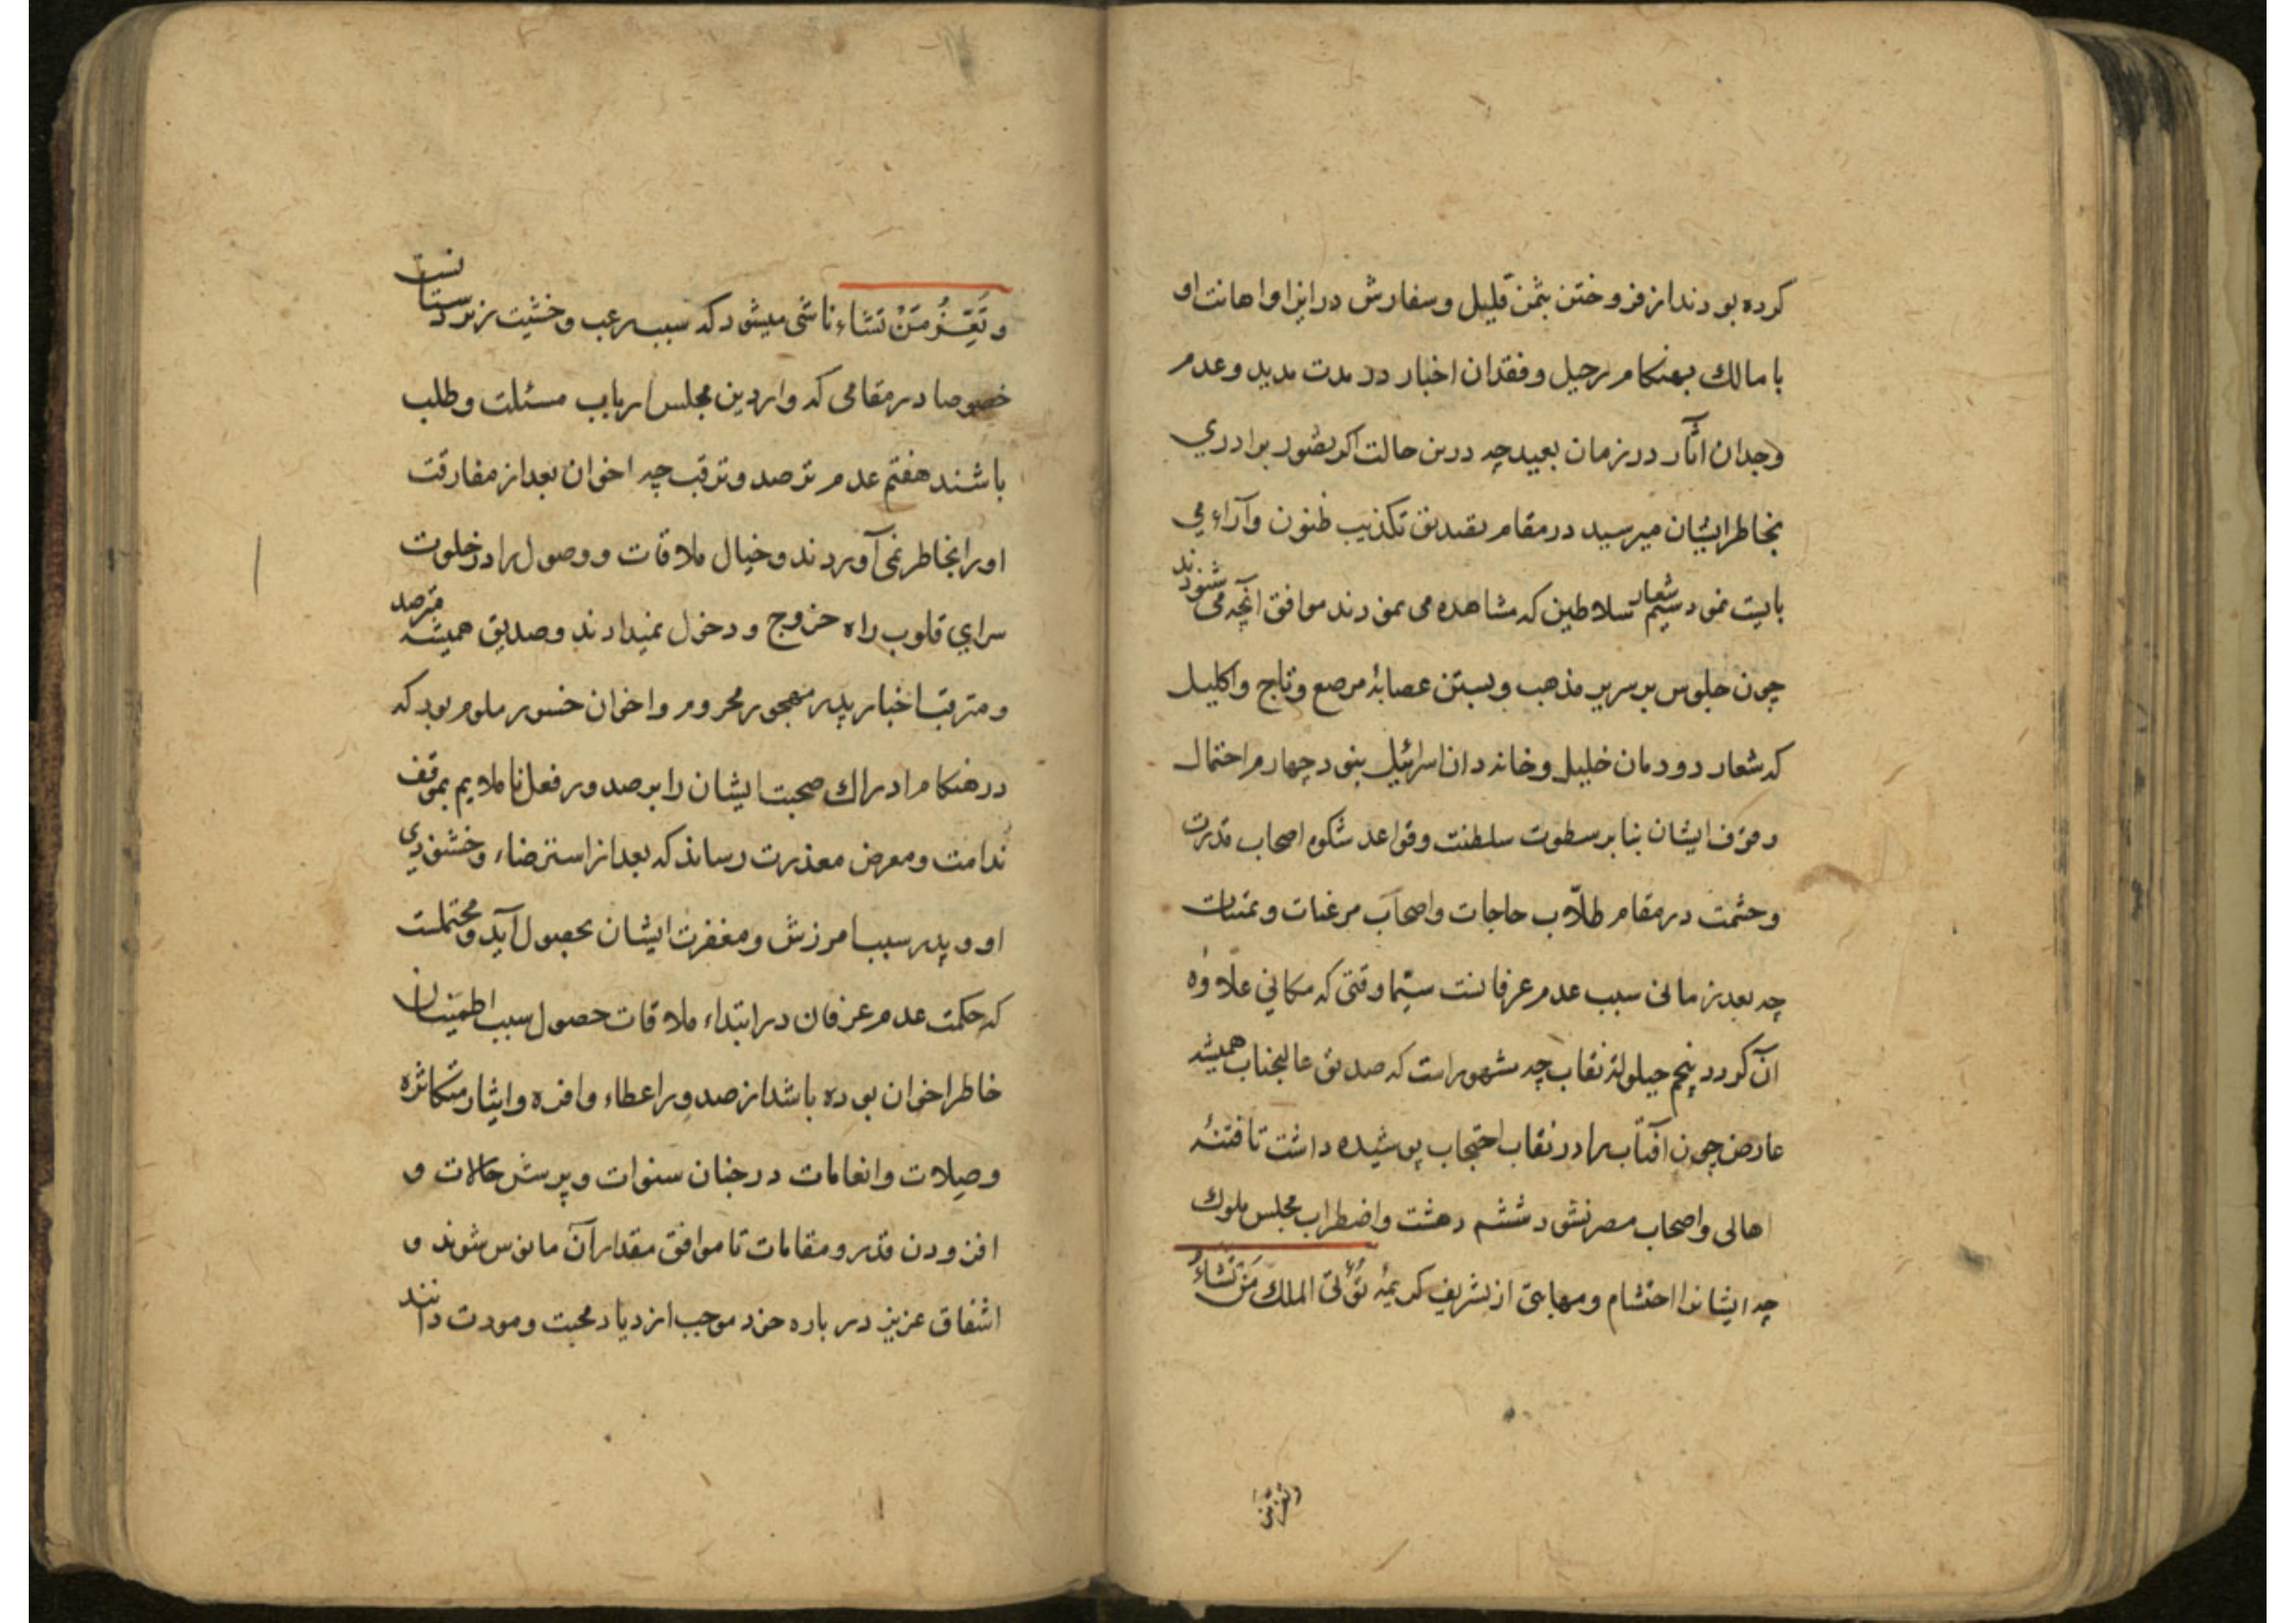 کرده بودند از فروختن بثمن قلیل و سفارش در ایذا و اهانت او
با مالك بهنکام رحیل و فقدان اخبار در مدت مدید و عدم
وجدان آثار در زمان بعید چه درین حالت اکر تصور برادری
بخاطر ایشان میرسید در مقام تصدیق تکذیب ظنون و آراء می
بایست نمود سیم شعار سلاطین که مشاهده می نمودند موافق آنچه می شنودند
چون جلوس بر سریر مذهب و بستن عصابهٔ مرصع و تاج و اکلیل
که شعار دودمان خلیل و خاندان اسرائیل بنود چهارم احتمال
وقوف ایشان بنا بر سطوت سلطنت و قواعد شکوه اصحاب قدرت
و حشمت در مقام طلّاب حاجات و اصحاب مرغبات و تمنیات
چه بعد زمانی سبب عدم عرفانست سیّما وقتی که مکانی علاوهٔ
آن کردد پنجم حیلولهٔ نقاب چه مشهور است که صدیق عالیجناب همیشه
عارض چون آفتاب را در نقاب احتجاب پوشیده داشت تا فتنهٔ
اهالی و اصحاب مصر نشود ششم دهشت و اضطراب مجلس ملوك
چه ایشانرا احتشام و مهابتی از تشریف کریمهٔ تُؤتی الملك مَنْ تَشَاءُ
و تعز من
وَ تُعِزُّ مَنْ تَشَاء ناشی میشود که سبب رعب و خشیت زیردستانست
خصوصا در مقامی که واردین مجلس ارباب مسئلت و طلب
باشند هفتم عدم ترصد و ترقب چه اخوان بعد از مفارقت
او را بخاطر نمی آوردند و خیال ملاقات و وصول را در خلوت
سرای قلوب راه خروج و دخول نمیدادند و صدیق همیشه مترصد
و مترقب اخبار پدر مهجور محروم و اخوان خسور ملوم بود که
در هنکام ادراك صحبت ایشان را بر صدور فعل ناملایم بموقف
ندامت و معرض معذرت رساند که بعد از استرضاء و خشنودی
او و پدر سبب امرزش و مغفرت ایشان بحصول آید و محتملست
که حکمت عدم عرفان در ابتداء ملاقات حصول سبب اطمینان
خاطر اخوان بوده باشد از صدور اعطاء وافره و ایثار متکاثره
و صلات و انعامات در چنان سنوات و پرسش حالات و
افزودن قدر و مقامات تا موافق مقدار آن مانوس شوند و
اشفاق عزیز در باره خود موجب ازدیاد محبت و مودت دانند